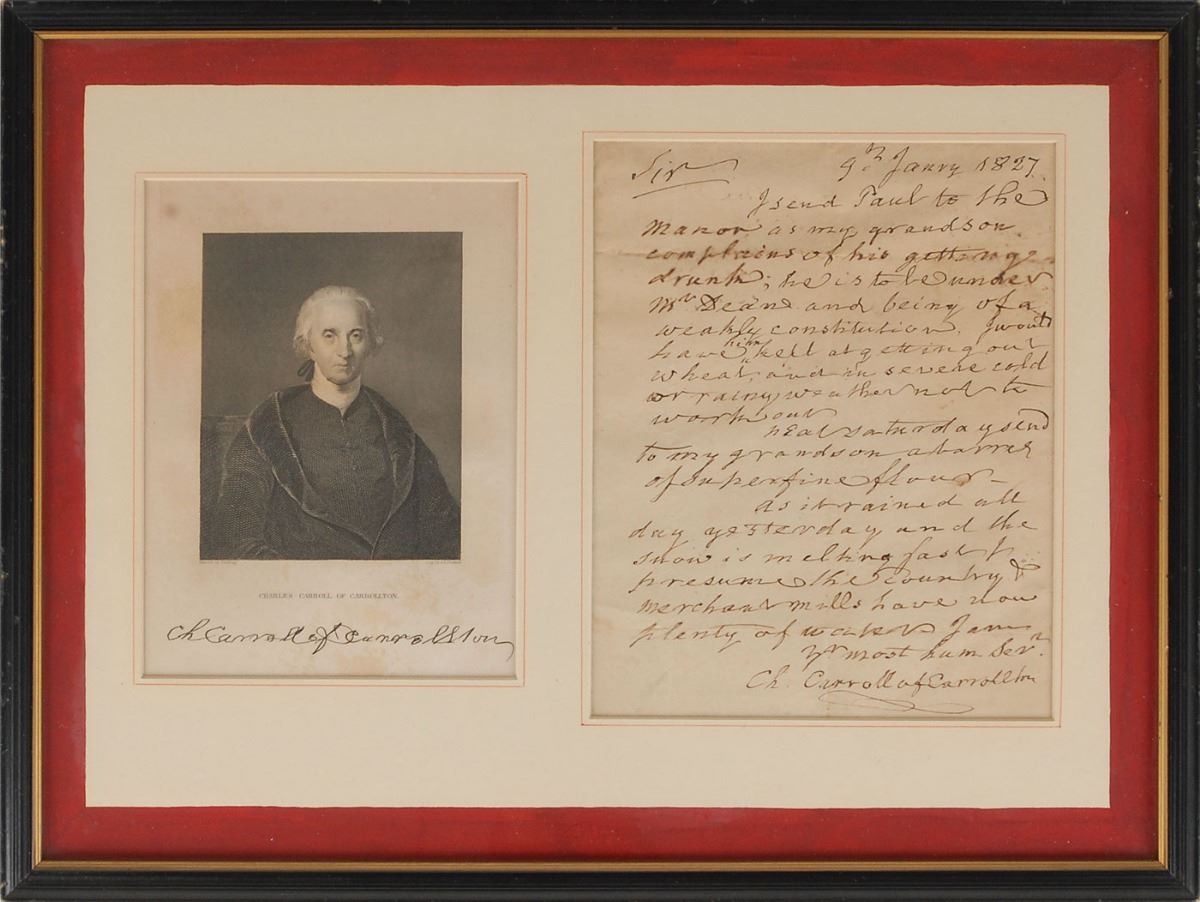 CHARLES CARROLL OF CARROLLTON.
Ch Carroll of Carrollton
Sir 9th Janry 1827.
I send Paul to the
Manor as my grandson
complains of his getting
drunk; he is to be under
Mr Deane and being of a
weakly constitution. I would
have him kept at getting out
wheat, and in severe cold
or rainy weather not to
work out
next saturday send
to my grandson a barrel
of superfine flour—
as it rained all
day yesterday and the
snow is melting fast I
presume the country &
merchant mills have now
plenty of water I am
yr most hum Servt.
Ch. Carroll of Carrollton